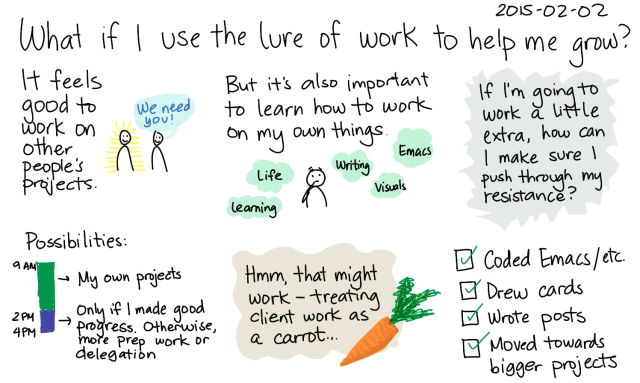 2015-02-02
What if I use the lure of work to help me grow?
It feels
good to
work on
other
people's
projects.
We need
you!
But it's also important
to learn how to work
on my own things.
Life
Writing
Emacs
Visuals
Learning
If I'm going to
work a little
extra, how can
I make sure I
push through my
resistance?
Possibilities:
9 AM
→ My own projects
2 PM
4 PM
→ Only if I made good
progress. Otherwise,
more prep work or
delegation
Hmm, that might
work – treating
client work as
a carrot...
Coded Emacs/etc.
Drew cards
Wrote posts
Moved towards
bigger projects